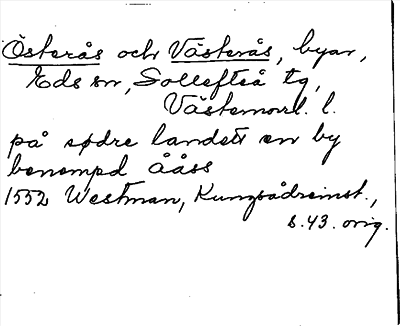 Österås och Västerås, byar,
Eds sn, Sollefteå tg,
Västernorrl. l.
på sødre landett en by
benempd Ååss
1552 Westman, Kungsådreinst.,
s. 43. orig.